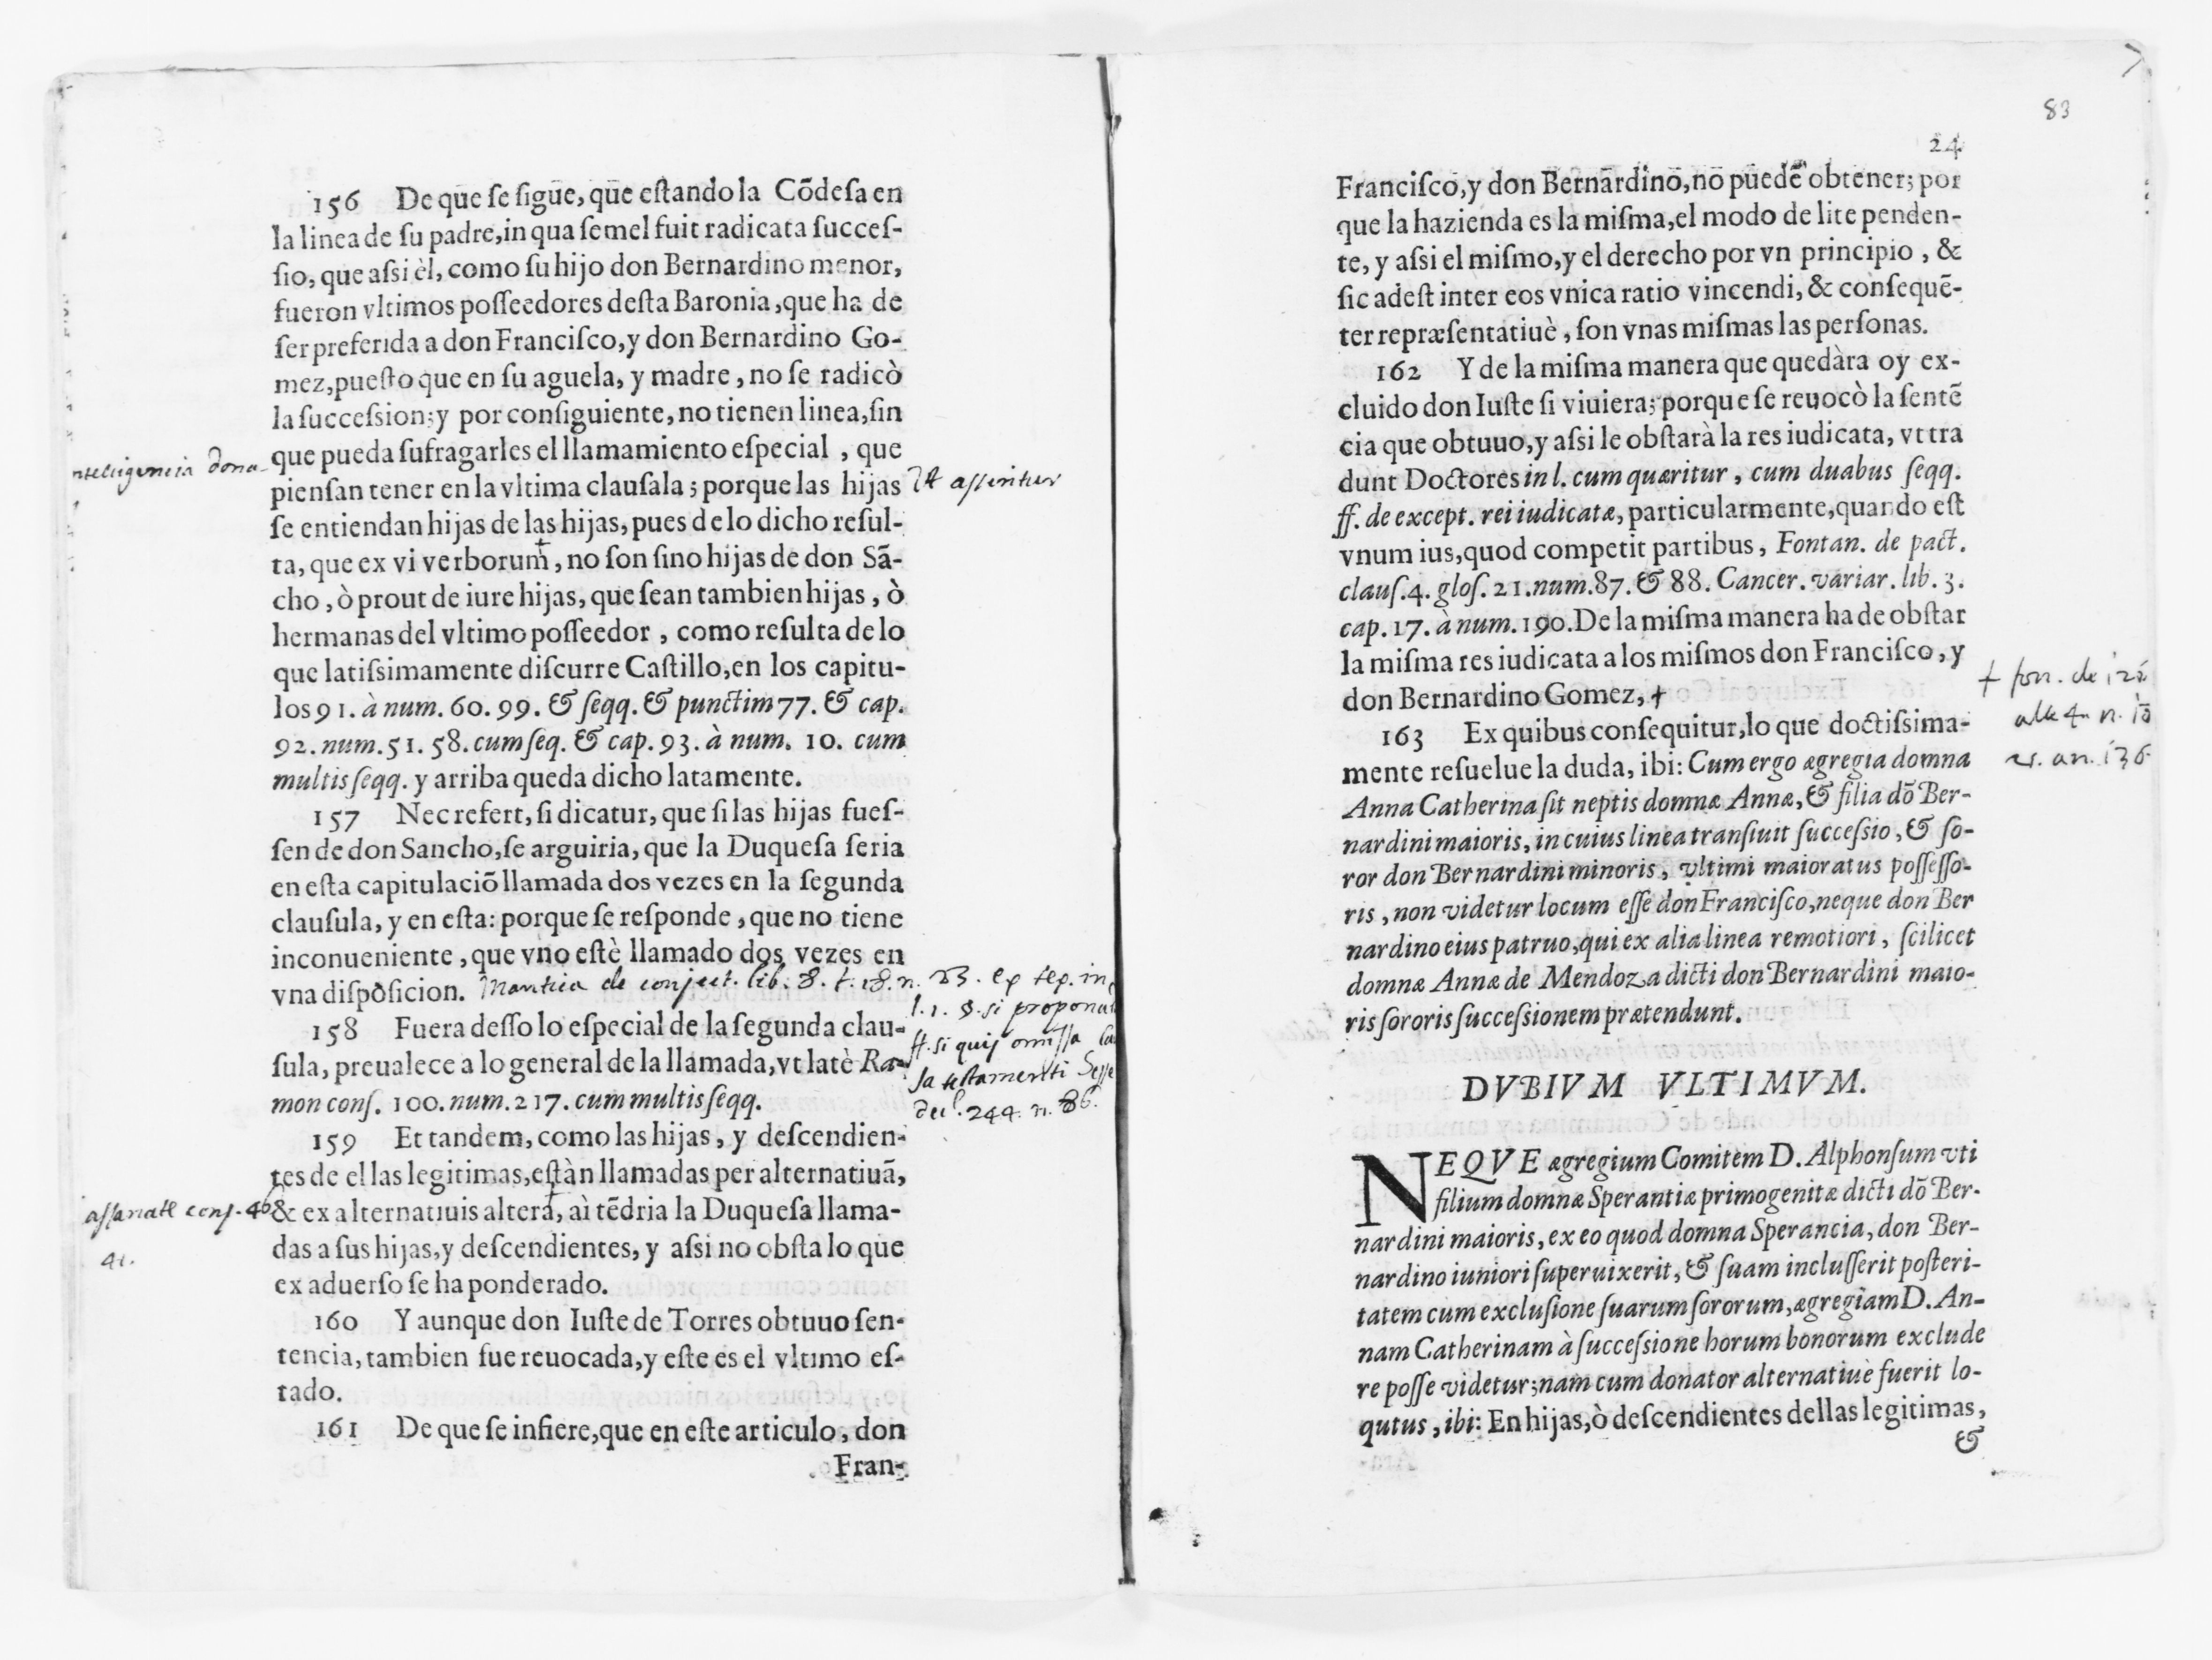 156 De que se sigue, que estando la Cõdesa en
la linea de su padre, in qua semel fuit radicata succes-
sio, que assi èl, como su hijo don Bernardino menor,
fueron vltimos posseedores desta Baronia, que ha de
ser preferida a don Francisco, y don Bernardino Go-
mez, puesto que en su aguela, y madre, no se radicò
la succession; y por consiguiente, no tienen linea, sin
que pueda sufragarles el llamamiento especial, que
piensan tener en la vltima clausala; porque las hijas
se entiendan hijas de las hijas, pues de lo dicho resul-
ta, que ex vi verborum, no son sino hijas de don Sã-
cho, ò prout de iure hijas, que sean tambien hijas, ò
hermanas del vltimo posseedor, como resulta de lo
que latissimamente discurre Castillo, en los capitu-
los 91. à num. 60. 99. & seqq. & punctim 77. & cap.
92. num. 51. 58. cum seq. & cap. 93. à num. 10. cum
multis seqq. y arriba queda dicho latamente.
157 Nec refert, si dicatur, que si las hijas fues-
sen de don Sancho, se arguiria, que la Duquesa seria
en esta capitulaciõ llamada dos vezes en la segunda
clausula, y en esta: porque se responde, que no tiene
inconueniente, que vno estè llamado dos vezes en
vna disposicion. Mantica de conject. lib. 8. t. 18. n.
l. 1. §. si propona
ff. si quis omissa
sa testamenti Sesse
deci. 244. n. 86.
158 Fuera desso lo especial de la segunda clau-
sula, preualece a lo general de la llamada, vt latè Ra-
mon cons. 100. num. 217. cum multis seqq.
159 Et tandem, como las hijas, y descendien-
tes de ellas legitimas, estàn llamadas per alternatiuã,
& ex alternatiuis altera, ài tẽdria la Duquesa llama-
das a sus hijas, y descendientes, y assi no obsta lo que
ex aduerso se ha ponderado.
41.
160 Y aunque don Iuste de Torres obtuuo sen-
tencia, tambien fue reuocada, y este es el vltimo es-
tado.
161 De que se infiere, que en este articulo, don
Fran-
83
24
Francisco, y don Bernardino, no puedẽ obtener; por
que la hazienda es la misma, el modo de lite penden-
te, y assi el mismo, y el derecho por vn principio, &
sic adest inter eos vnica ratio vincendi, & consequẽ-
ter repræsentatiuè, son vnas mismas las personas.
162 Y de la misma manera que quedàra oy ex-
cluido don Iuste si viuiera; porque se reuocò la sentẽ
cia que obtuuo, y assi le obstarà la res iudicata, vt tra
dunt Doctores in l. cum quæritur, cum duabus seqq.
ff. de except. rei iudicatæ, particularmente, quando est
vnum ius, quod competit partibus, Fontan. de pact.
claus. 4. glos. 21. num. 87. & 88. Cancer. variar. lib. 3.
cap. 17. à num. 190. De la misma manera ha de obstar
la misma res iudicata a los mismos don Francisco, y
don Bernardino Gomez, +
163 Ex quibus consequitur, lo que doctissima-
mente resuelue la duda, ibi: Cum ergo ægregia domna
Anna Catherina sit neptis domnæ Annæ, & filia dõ Ber-
nardini maioris, in cuius linea transiuit successio, & so-
ror don Bernardini minoris, vltimi maioratus possesso-
ris, non videtur locum esse don Francisco, neque don Ber
nardino eius patruo, qui ex alia linea remotiori, scilicet
domnæ Annæ de Mendoza dicti don Bernardini maio-
ris sororis successionem prætendunt.
DVBIVM VLTIMVM.
NEQVE ægregium Comitem D. Alphonsum vti
filium domnæ Sperantiæ primogenitæ dicti dõ Ber-
nardini maioris, ex eo quod domna Sperancia, don Ber-
nardino iuniori superuixerit, & suam inclusserit posteri-
tatem cum exclusione suarum sororum, ægregiam D. An-
nam Catherinam à successione horum bonorum exclude
re posse videtur; nam cum donator alternatiuè fuerit lo-
qutus, ibi: En hijas, ò descendientes dellas legitimas,
&